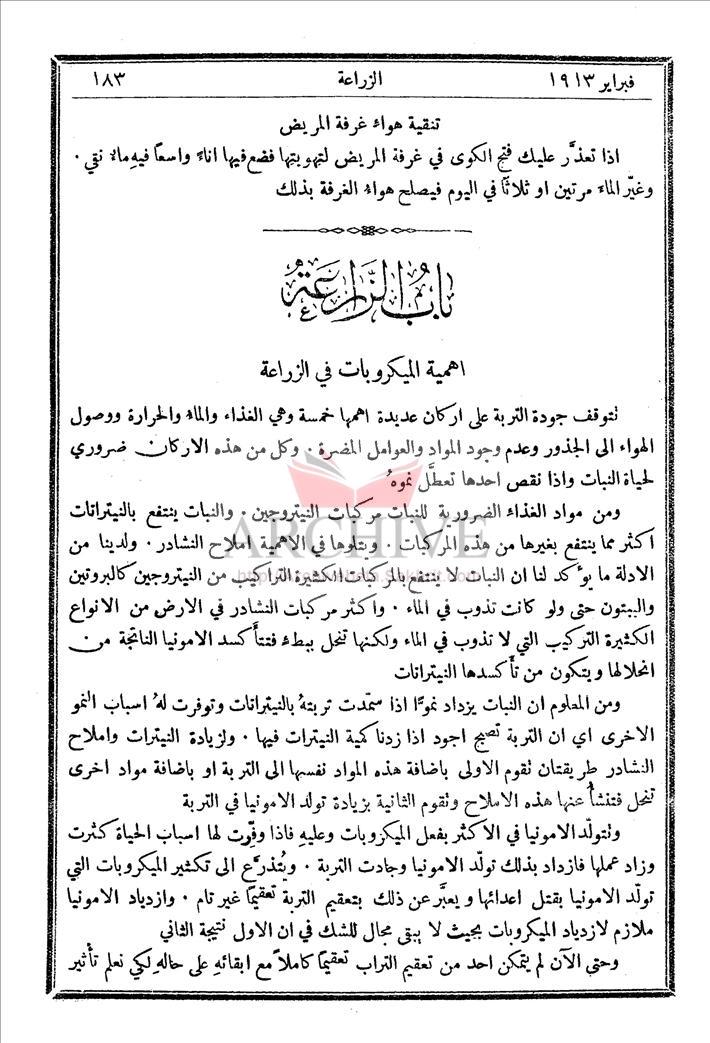 فبراير ١٩١٣ الزراعة ١٨٣
تنقية هواء غرفة المريض
اذا تعذَّر عليك فتح الكوى في غرفة المريض لتهويتها فضع فيها اناءً واسعًا فيه ماء نقي ٠
وغيّر الماء مرتين او ثلاثًا في اليوم فيصلح هواء الغرفة بذلك
باب الزراعة
اهمية الميكروبات في الزراعة
تتوقف جودة التربة على اركان عديدة اهمها خمسة وهي الغذاء والماء والحرارة ووصول
الهواء الى الجذور وعدم وجود المواد والعوامل المضرة ٠ وكل من هذه الاركان ضروري
لحياة النبات واذا نقص احدها تعطَّل نموهُ
ومن مواد الغذاء الضرورية للنبات مركبات النيتروجين ٠ والنبات ينتفع بالنيتراتات
اكثر مما ينتفع بغيرها من هذه المركبات ٠ ويتلوها في الاهمية املاح النشادر ٠ ولدينا من
الادلة ما يؤكد لنا ان النبات لا ينتفع بالمركبات الكثيرة التراكيب من النيتروجين كالبروتين
والببتون حتى ولو كانت تذوب في الماء ٠ واكثر مركبات النشادر في الارض من الانواع
الكثيرة التركيب التي لا تذوب في الماء ولكنها تنحل ببطء فتتأكسد الامونيا الناتجة من
انحلالها ويتكون من تأكسدها النيتراتات
ومن المعلوم ان النبات يزداد نموًّا اذا سمّدت تربتهُ بالنيتراتات وتوفرت لهُ اسباب النمو
الاخرى اي ان التربة تصبح اجود اذا زدنا كمية النيترات فيها ٠ ولزيادة النيترات واملاح
النشادر طريقتان تقوم الاولى باضافة هذه المواد نفسها الى التربة او باضافة مواد اخرى
تنحل فتنشأ عنها هذه الاملاح وتقوم الثانية بزيادة تولد الامونيا في التربة
وتتولّد الامونيا في الاكثر بفعل الميكروبات وعليهِ فاذا وفّرت لها اسباب الحياة كثرت
وزاد عملها فازداد بذلك تولّد الامونيا وجادت التربة ٠ ويُتذرَّع الى تكثير الميكروبات التي
تولّد الامونيا بقتل اعدائها ويعبَّر عن ذلك بتعقيم التربة تعقيمًا غير تام ٠ وازدياد الامونيا
ملازم لازدياد الميكروبات بحيث لا يبقى مجال للشك في ان الاول نتيجة الثاني
وحتى الآن لم يتمكن احد من تعقيم التراب تعقيمًا كاملًا مع ابقائهِ على حالهِ لكي نعلم تأثير
ARCHIVE